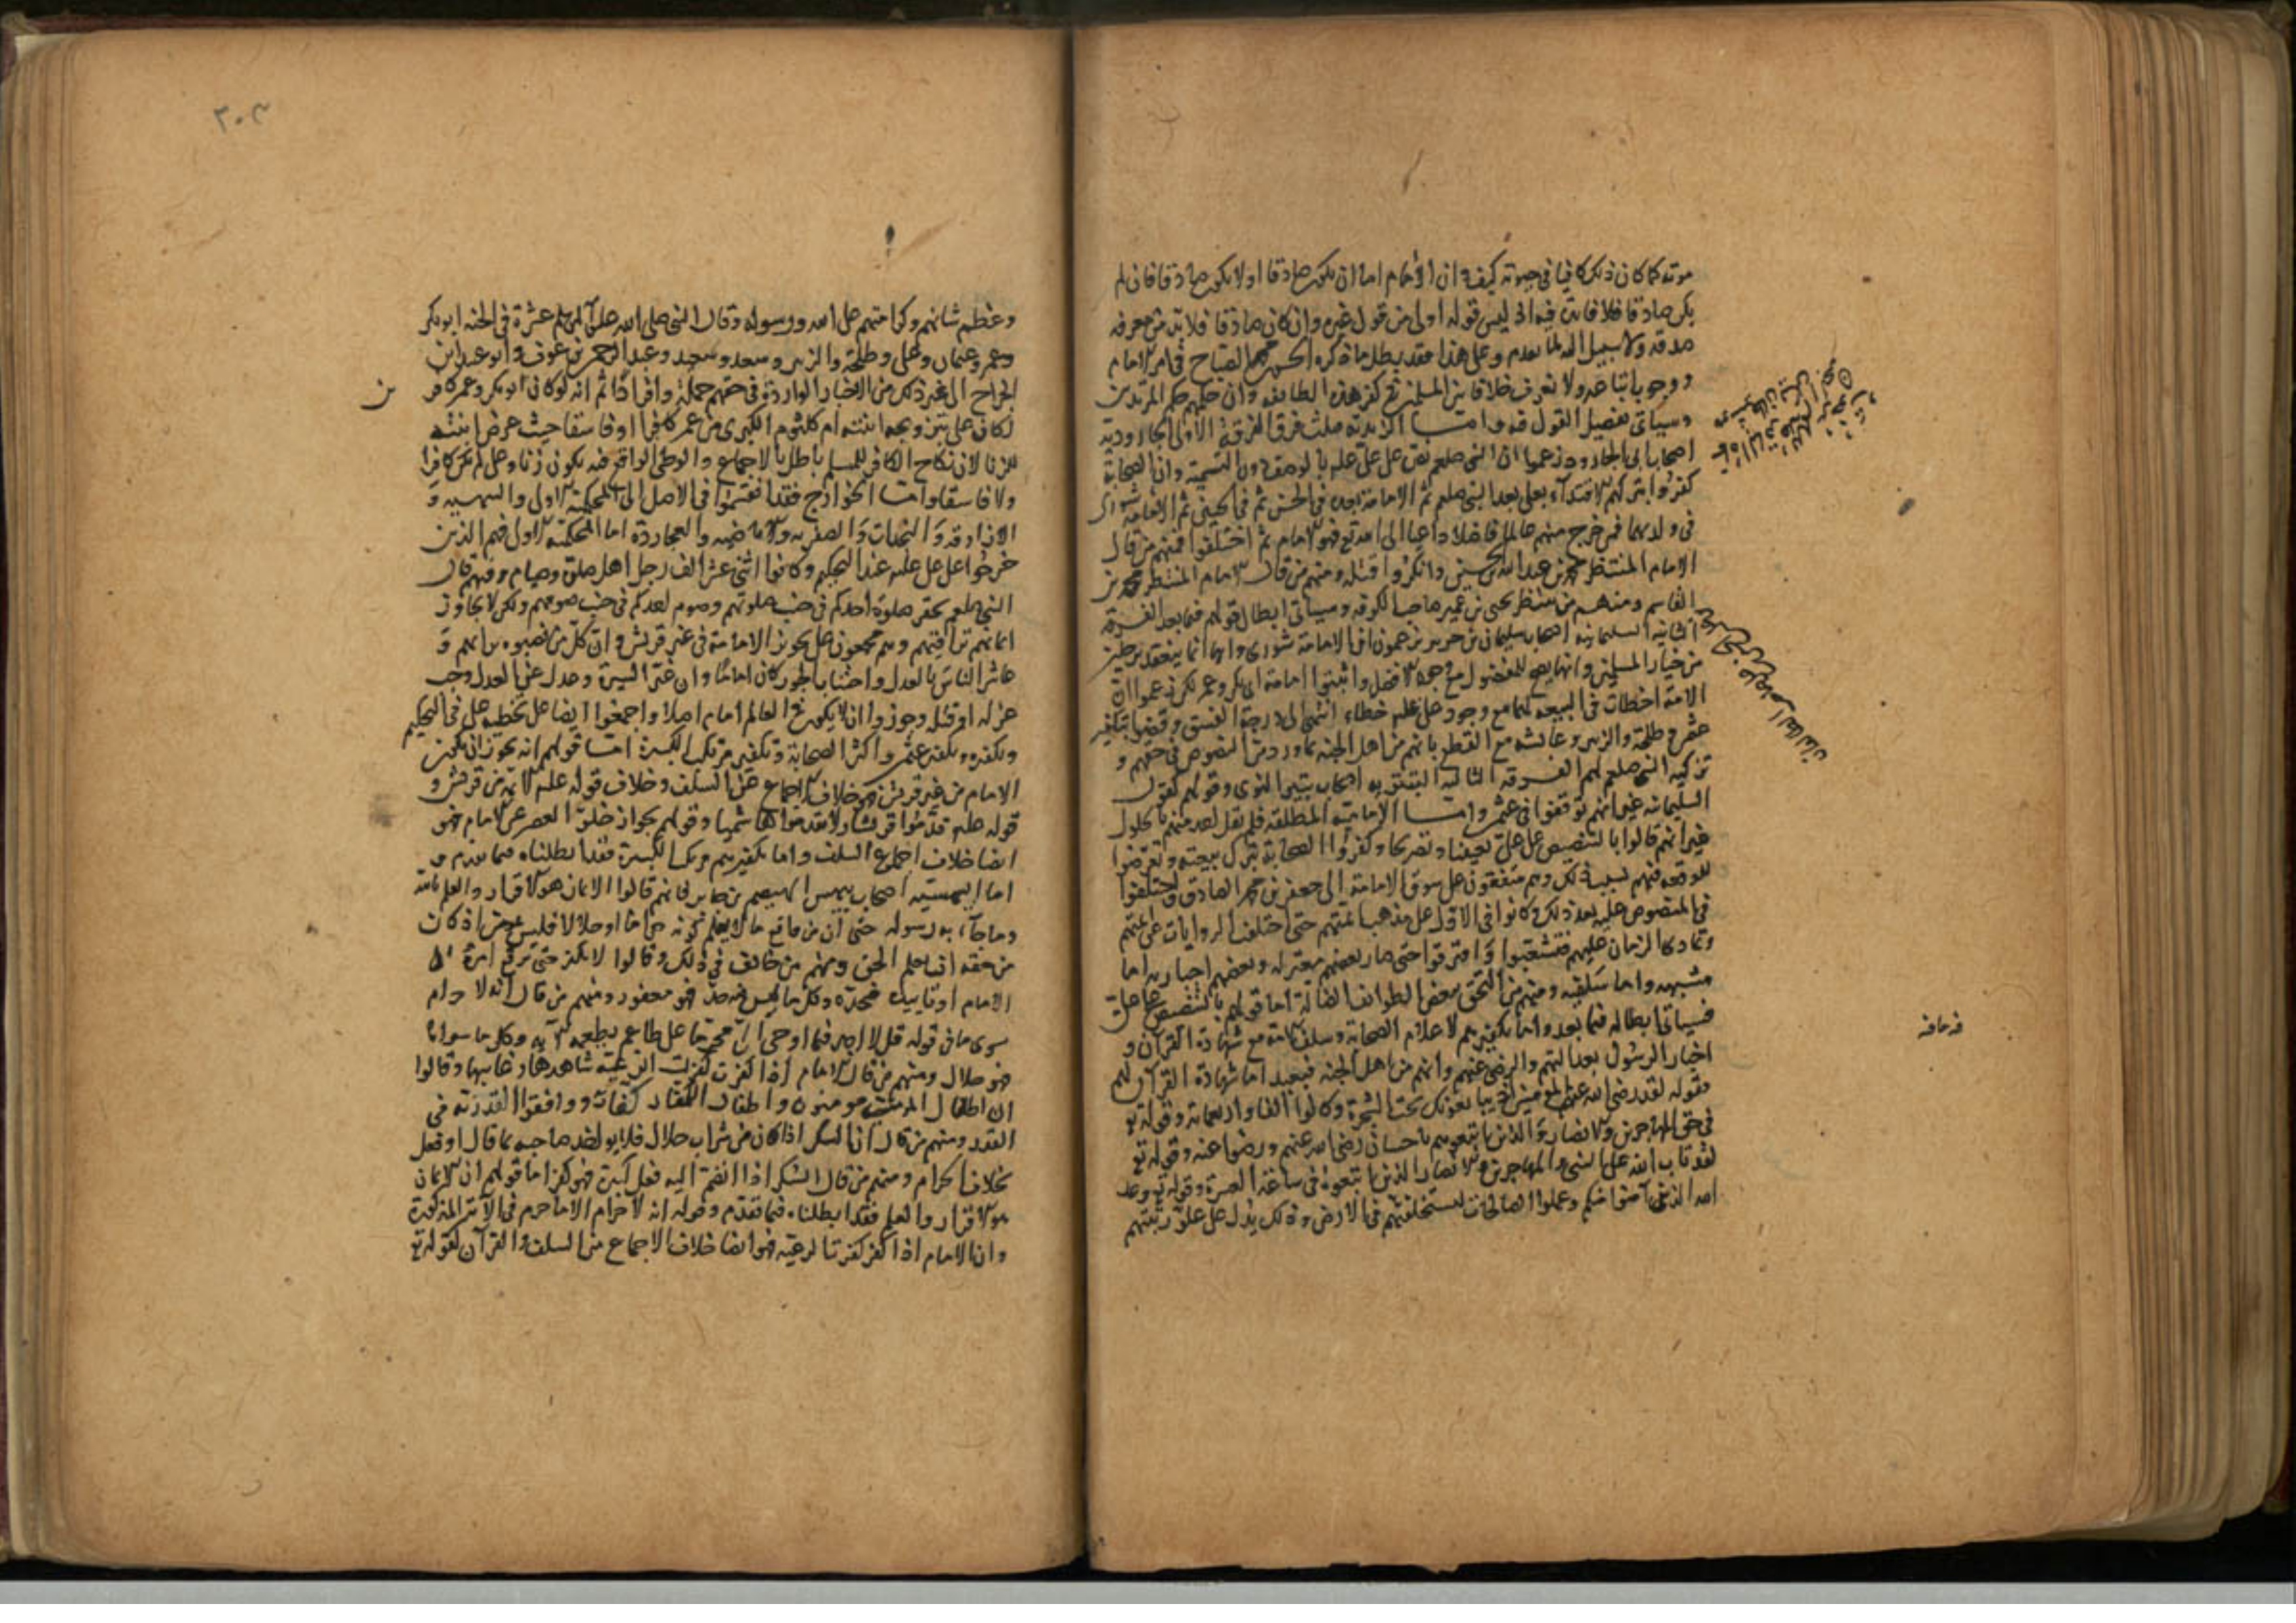 موته كما كان ذلك كافيا في حيوته كيف وان الامام اما ان يكون صادقا او لا يكون صادقا فان لم
يكن صادقا فلا فائدة فيه اذ ليس قوله اولى من قول غيره وان كان صادقا فلا بد من معرفة
صدقه ولا سبيل اليه لما تقدم وعلى هذا فقد بطل ما ذكره الحسن بن محمد الصباح في امر الامام
ووجوب اتباعه ولا نعرف خلافا بين المسلمين في كفر هذه الطايفة وان حكمهم حكم المرتدين
وسياتي تفصيل القول فيه واما الزيدية فثلث فرق الفرقة الاولى الجارودية
اصحاب ابى الجارود زعموا ان النبى صلعم نص على على عليه بالوصف دون التسمية وان الصحابة
كفروا بتركهم الاقتداء بعلى بعد النبى صلعم ثم الامامة بعده في الحسن ثم في الحسين ثم الامامة شورى
فى ولديهما فمن خرج منهم عالما فاضلا داعيا الى الله تع فهو الامام ثم اختلفوا فمنهم من قال
الامام المنتظر محمد بن عبد الله بن الحسين وانكروا قتله ومنهم من قال الامام المنتظر محمد بن
القاسم ومنهم من ينتظر يحيى بن عمير صاحب الكوفة وسياتى ابطال قولهم فيما بعد الفرقة
الثانية السليمانية اصحاب سليمان بن جرير يزعمون ان الامامة شورى وانها انما ينعقد برجلين
من خيار المسلمين وانها يصح للمفضول مع وجود الافضل واثبتوا امامة ابى بكر وعمر لكن زعموا ان
الامة اخطات في البيعة لهما مع وجود على عليه خطاء لا ينتهى الى درجة الفسق وقضوا بتكفير
عثمن وطلحة والزبير وعائشة مع القطع بانهم من اهل الجنة بما ورد من النصوص في حقهم و
تزكية النبى صلعم لهم الفرقة الثالثة البتيرية اصحاب بتير النوى وقولهم كقول
السليمانية غير انهم توقفوا في عثمن واما الامامية المطلقة فلم يقل احد منهم بالحلول
غير انهم قالوا بالتنصيص على على تعيينا وتصريحا وكفروا الصحابة بترك بيعته وتعرضوا
للوقيعة فيهم بسبب ذلك وهم متفقون على سوق الامامة الى جعفر بن محمد الصادق واختلفوا
في المنصوص عليه بعد ذلك وكانوا في الاول على مذهب ائمتهم حتى اختلفت الروايات عن ائمتهم
وتمادى الزمان عليهم فتشعبوا وافترقوا حتى صار بعضهم معتزلة وبعضهم اخبارية اما
مشبهه واما سلفيه ومنهم من التحق ببعض الطوائف الضالة اما قولهم بالتنصيص على على
فسياتى ابطاله فيما بعد واما تكفيرهم لاعلام الصحابة وسلف الامة مع شهادة القرآن و
اخبار الرسول بعدالتهم والرضى عنهم وانهم من اهل الجنة فبعيد اما شهادة القرآن لهم
فقوله لقد رضى الله عن المؤمنين اذ يبايعونك تحت الشجرة وكانوا الفا واربعماية وقوله تع
فى حق المهاجرين والانصار والذين اتبعوهم باحسان رضى الله عنهم ورضوا عنه وقوله تع
لقد تاب الله على النبى والمهاجرين والانصار الذين اتبعوه في ساعة العسرة وقوله تع وعد
الله الذين آمنوا منكم وعملوا الصالحات ليستخلفنهم في الارض وذلك يدل على علو رتبتهم
٣٠٣
وعظم شانهم وكرامتهم على الله ورسوله وقال النبى صلى الله عليه وآله وسلم عشرة في الجنة ابو بكر
وعمر وعثمان وعلى وطلحة والزبير وسعد وسعيد وعبد الرحمن بن عوف وابو عبيدة بن
الجراح الى غير ذلك من الاخبار الواردة في حقهم جملة وافرادا ثم انه لو كان ابو بكر وعمر كافرين
لكان على بتزويجه ابنته ام كلثوم الكبرى من عمر كافرا او فاسقا حيث عرض ابنته
للزنا لان نكاح الكافر للمسلم باطل بالاجماع والوطى الواقع فيه يكون زنا وعلى لم يكن كافرا
ولا فاسقا واما الخوارج فقد انقسموا في الاصل الى المحكمة الاولى والبيهسية و
الازارقة والنجدات والصفرية والاباضية والعجاردة اما المحكمة الاولى فهم الذين
خرجوا على على عليه عند التحكيم وكانوا اثنى عشر الف رجل اهل صلوة وصيام وفيهم قال
النبى صلعم يحقر صلوة احدكم في جنب صلوتهم وصوم احدكم في جنب صومهم ولكن لا يجاوز
ايمانهم تراقيهم وهم مجمعون على تجويز الامامة في غير قريش وان كل من نصبوه برايهم و
عاشر الناس بالعدل واجتناب الجور كان اماما وان غير السيرة وعدل عن العدل وجب
عزله او قتله وجوزوا ان لا يكون في العالم امام اصلا واجمعوا ايضا على تخطية على في التحكيم
وتكفيره وتكفير عثمن واكثر الصحابة وتكفير مرتكب الكبيرة اما قولهم انه يجوز ان يكون
الامام من غير قريش فهو خلاف اجماع من السلف وخلاف قوله عليه الائمة من قريش و
قوله عليه قدموا قريشا ولا تقدموها وقولهم بجواز خلو العصر عن الامام فهو
ايضا خلاف اجماع السلف واما تكفيرهم مرتكب الكبيرة فقد ابطلناه فيما تقدم و
اما البيهسية اصحاب بيهس الهيصم بن جابر فانهم قالوا الايمان هو الاقرار والعلم بالله
وما جاء به رسوله حتى ان من واقع ما لا يعلم كونه حراما او حلالا فليس بمؤمن اذ كان
من حقه ان يعلم الحق ومنهم من خالف في ذلك وقالوا لا يكفر حتى يرفع امره الى
الامام او نايبه فيحده وكل ما ليس فيه حد فهو مغفور ومنهم من قال انه لا حرام
سوى ما في قوله قل لا اجد فيما اوحى الى محرما على طاعم يطعمه الآية وكل ما سواه
فهو حلال ومنهم من قال الامام اذا كفر كفرت الرعية شاهدها وغايبها وقالوا
ان اطفال المومنين مومنون واطفال الكفار كفار ووافقوا القدرية في
القدر ومنهم من قال ان السكر اذا كان من شراب حلال فلا يواخذ صاحبه بما قال او فعل
بخلاف الحرام ومنهم من قال السكر اذا انضم اليه فعل كبيرة فهو كفر اما قولهم ان الايمان
هو الاقرار والعلم فقد ابطلناه فيما تقدم وقوله انه لا حرام الا ما حرم في الآية المذكورة
وان الامام اذا كفر كفرت الرعية فهو ايضا خلاف الاجماع من السلف والقرآن لقوله تع